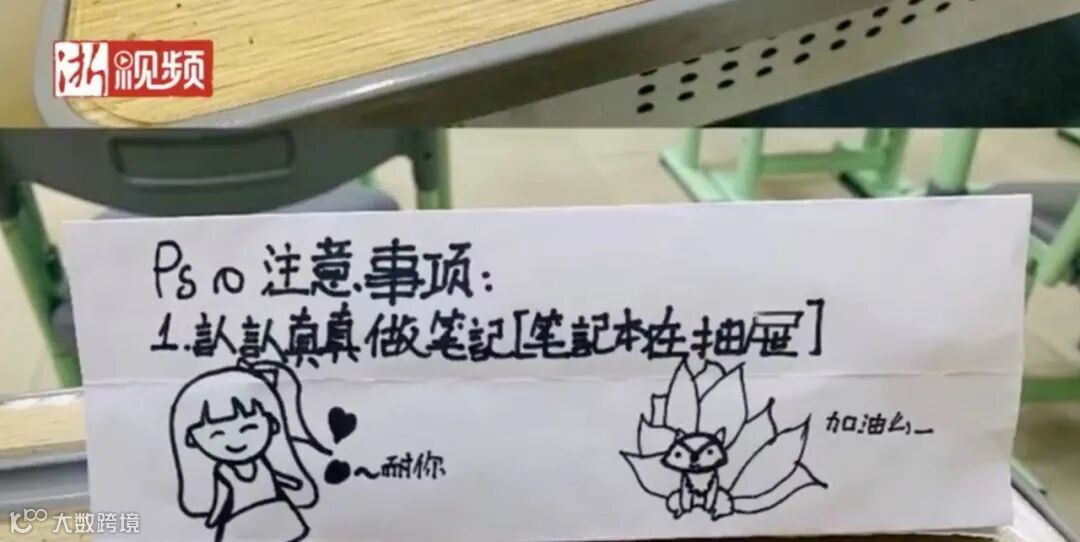 浙视频
Ps∾注意事项:
1.訤訤真真做笔記[笔記本在抽屉]
~耐你
加油幺_
大数跨境